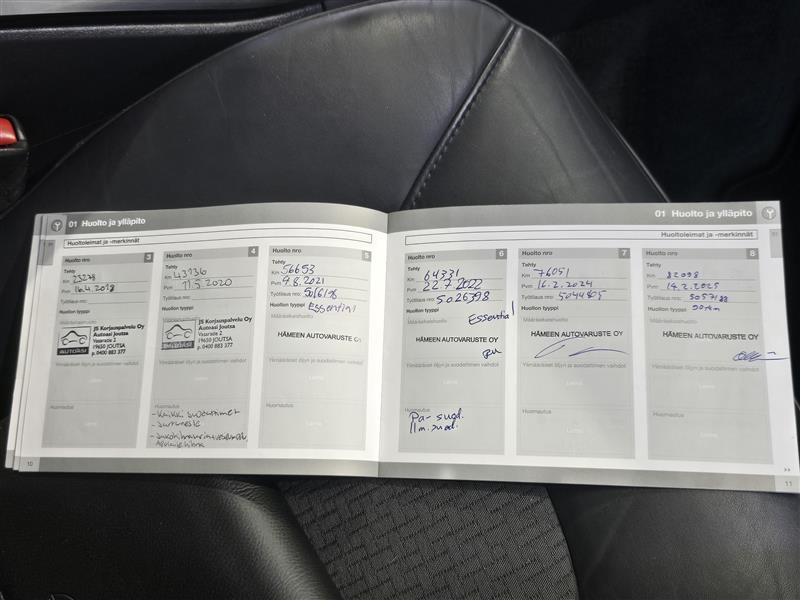 01 Huolto ja ylläpito
Huoltoleimat ja -merkinnät
Huolto nro 3
Tehty
Km 23278
Pvm 16.4.2018
Työtilaus nro:
Huollon tyyppi
Määräaikaishuolto
JS Korjuspalvelu Oy
Autoasi Joutsa
Vaarade 2
19650 JOUTSA
p. 0400 883 377
AUTOASI
Ylimääräiset öljyn ja suodattimen vaihdot
Leima
Huomautus
Leima
Huolto nro 4
Tehty
Km 43136
Pvm 11.5.2020
Työtilaus nro:
Huollon tyyppi
Määräaikaishuolto
JS Korjuspalvelu Oy
Autoasi Joutsa
Vaarade 2
19650 JOUTSA
p. 0400 883 377
Ylimääräiset öljyn ja suodattimen vaihdot
Leima
Huomautus
- Kaikki suodattimet
- Jarruneste
10
Huolto nro 5
Tehty
Km 56653
Pvm 9.8.2021
Työtilaus nro: 5016198
Huollon tyyppi Essential
Määräaikaishuolto
HÄMEEN AUTOVARUSTE OY
Ylimääräiset öljyn ja suodattimen vaihdot
Leima
Huomautus
Leima
01 Huolto ja ylläpito
Huoltoleimat ja -merkinnät
Huolto nro 6
Tehty
Km 64331
Pvm 22.7.2022
Työtilaus nro: 5026398
Huollon tyyppi
Essential
Määräaikaishuolto
HÄMEEN AUTOVARUSTE OY
Ylimääräiset öljyn ja suodattimen vaihdot
Leima
Huomautus
Pa- suod.
Ilm.suod.
Huolto nro 7
Tehty
Km 76051
Pvm 16.2.2024
Työtilaus nro: 5044805
Huollon tyyppi
Määräaikaishuolto
HÄMEEN AUTOVARUSTE OY
Ylimääräiset öljyn ja suodattimen vaihdot
Leima
Huomautus
Leima
Huolto nro 8
Tehty
Km 82098
Pvm 14.2.2025
Työtilaus nro: 5057188
Huollon tyyppi
Määräaikaishuolto
HÄMEEN AUTOVARUSTE OY
Ylimääräiset öljyn ja suodattimen vaihdot
Leima
Huomautus
Leima
11